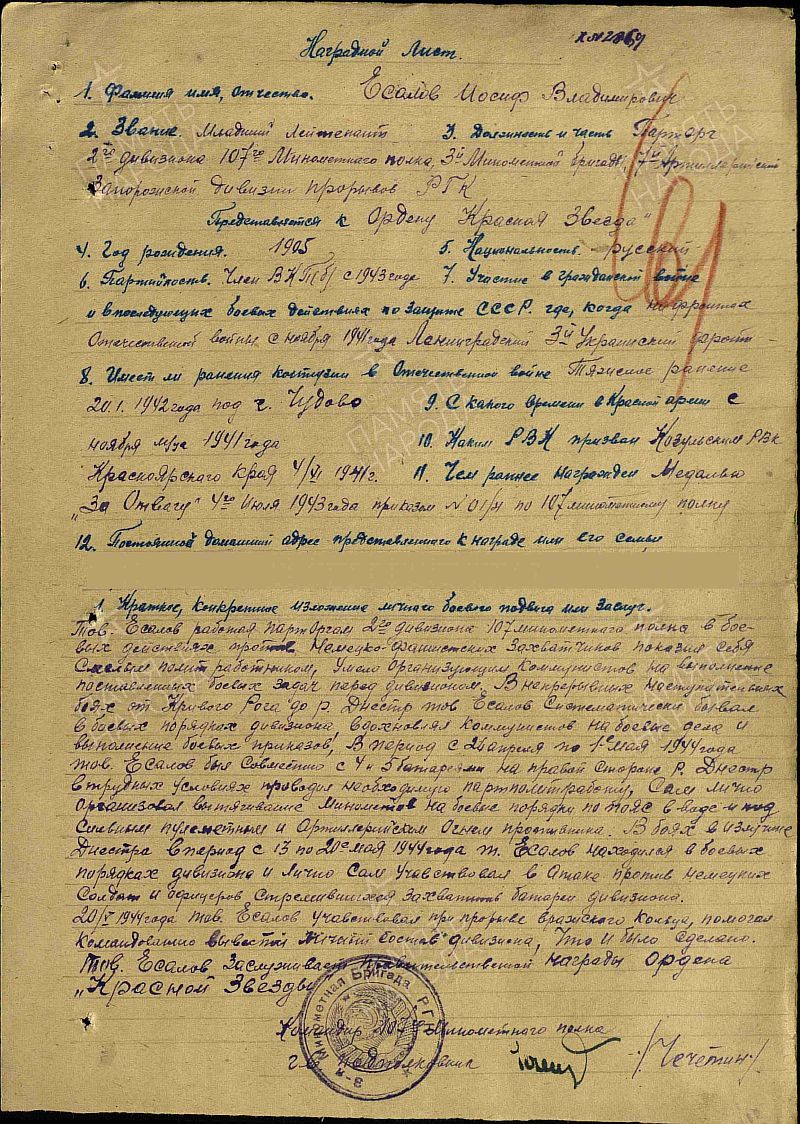 Наградной Лист.
1. Фамилия имя, отчество. Есалов Иосиф Владимирович
2. Звание. Младший Лейтенант 3. Должность и часть Парторг
2го дивизиона 107го Минометного полка, 3й Минометной бригады, 7й Артиллерийской
Запорожской дивизии прорывов РГК
Представляется к Ордену "Красная Звезда"
4. Год рождения. 1905 5. Национальность. русский
6. Партийность. Член ВКП(б) с 1943 года 7. Участие в гражданской войне
и в последующих боевых действиях по защите СССР. где, когда на фронтах
Отечественной войны с ноября 1941 года Ленинградский 3й Украинский фронт
8. Имеет ли ранения контузии в Отечественной войне Тяжелое ранение
20.1.1942 года под г. Чудово 9. С какого времени в Красной армии с
ноября м-ца 1941 года 10. Каким РВК призван Козульским РВК
Красноярского края 4/VI 1941г. 11. Чем раннее награжден Медалью
"За Отвагу" 4го Июля 1943 года приказом №01/н по 107 минометному полку
12. Постоянной домашний адрес представленного к награде или его семьи
1. Краткое, конкретное изложение личного боевого подвига или заслуг.
Тов. Есалов работая парторгом 2го дивизиона 107 минометного полка в бое-
вых действиях против Немецко-фашистских Захватчиков показал себя
Смелым полит работником, умело организующим Коммунистов на выполнение
поставленных боевых задач перед дивизионом. В непрерывных наступательных
боях от Кривого Рога до р. Днестр тов Есалов Систематически бывал
в боевых порядках дивизиона, вдохновлял Коммунистов на боевые дела и
выполнение боевых приказов, В период с 26 апреля по 1е мая 1944 года
тов. Есалов был Совместно с 4 и 5 батареями на правой Стороне р. Днестр
в трудных условиях проводил необходимую партполитработу, Сам лично
Организовал вытягивание Минометов на боевые порядки по пояс в воде и под
Сильным пулеметным и Артиллерийском Огнем противника. В боях в излучине
Днестра в период с 13 по 20е мая 1944 года т. Есалов находился в боевых
порядках дивизиона и Лично Сам Учавствовал в Атаке против немецких
Солдат и офицеров Стремившихся Захватить батареи дивизиона.
20/V 1944 года тов. Есалов Учавствовал при прорыве вражского кольца, помогая
Командованию вывести Личный состав дивизиона, Что и было сделано.
Тов. Есалов Заслуживает Правительственной награды ордена
"Красной Звезды"
Командир 107 Минометного полка
гв подполковник /Чечетин/
3-я Минометная Бригада РГК
ПАМЯТЬ НАРОДА